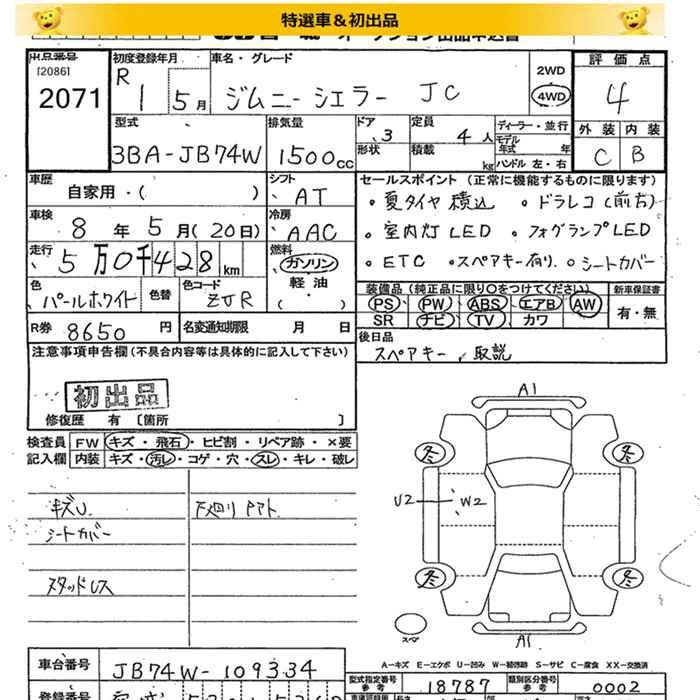 特選車＆初出品
出品番号
[2086]
2071
初度登録年月
R 1 5月
車名・グレード
ジムニーシエラー JC
2WD
4WD
評価点
4
外装 内装
C B
型式
3BA-JB74W
排気量
1500cc
ドア 3
定員 4人
ディーラー・並行
形状
積載 kg
モデル年式 年
ハンドル 左・右
車歴
自家用・( )
シフト
AT
セールスポイント (正常に機能するものに限ります)
・夏タイヤ積込 ・ドラレコ(前方)
・室内灯LED ・フォグランプLED
・ETC ・スペアキー有り ○シートカバー
車検
8年5月(20日)
冷房
AAC
走行
5万0千428km
燃料
ガソリン
軽油
( )
色
パールホワイト
色替
色コード
ZJR
装備品 (純正品に限り○をつけてください)
PS PW ABS エアB AW
SR ナビ TV カワ
新車保証書
有・無
R券 8650円
名変通知期限 月 日
後日品
スペアキー、取説
注意事項申告欄(不具合内容等は具体的に記入して下さい)
初出品
修復歴 有 [箇所 ]
検査員
記入欄
FW キズ・飛石・ヒビ割・リペア跡・×要
内装 キズ・汚レ・コゲ・穴・スレ・キレ・破レ
キズU
シートカバー
スタッドレス
下廻り
A1
冬 冬
U2 W2
冬 冬
スペア
A1
A－キズ E－エクボ U－凹み W－補修跡 S－サビ C－腐食 XX－交換済
車台番号
JB74W-109334
型式指定番号
参考
18787
類別区分番号
参考
0002